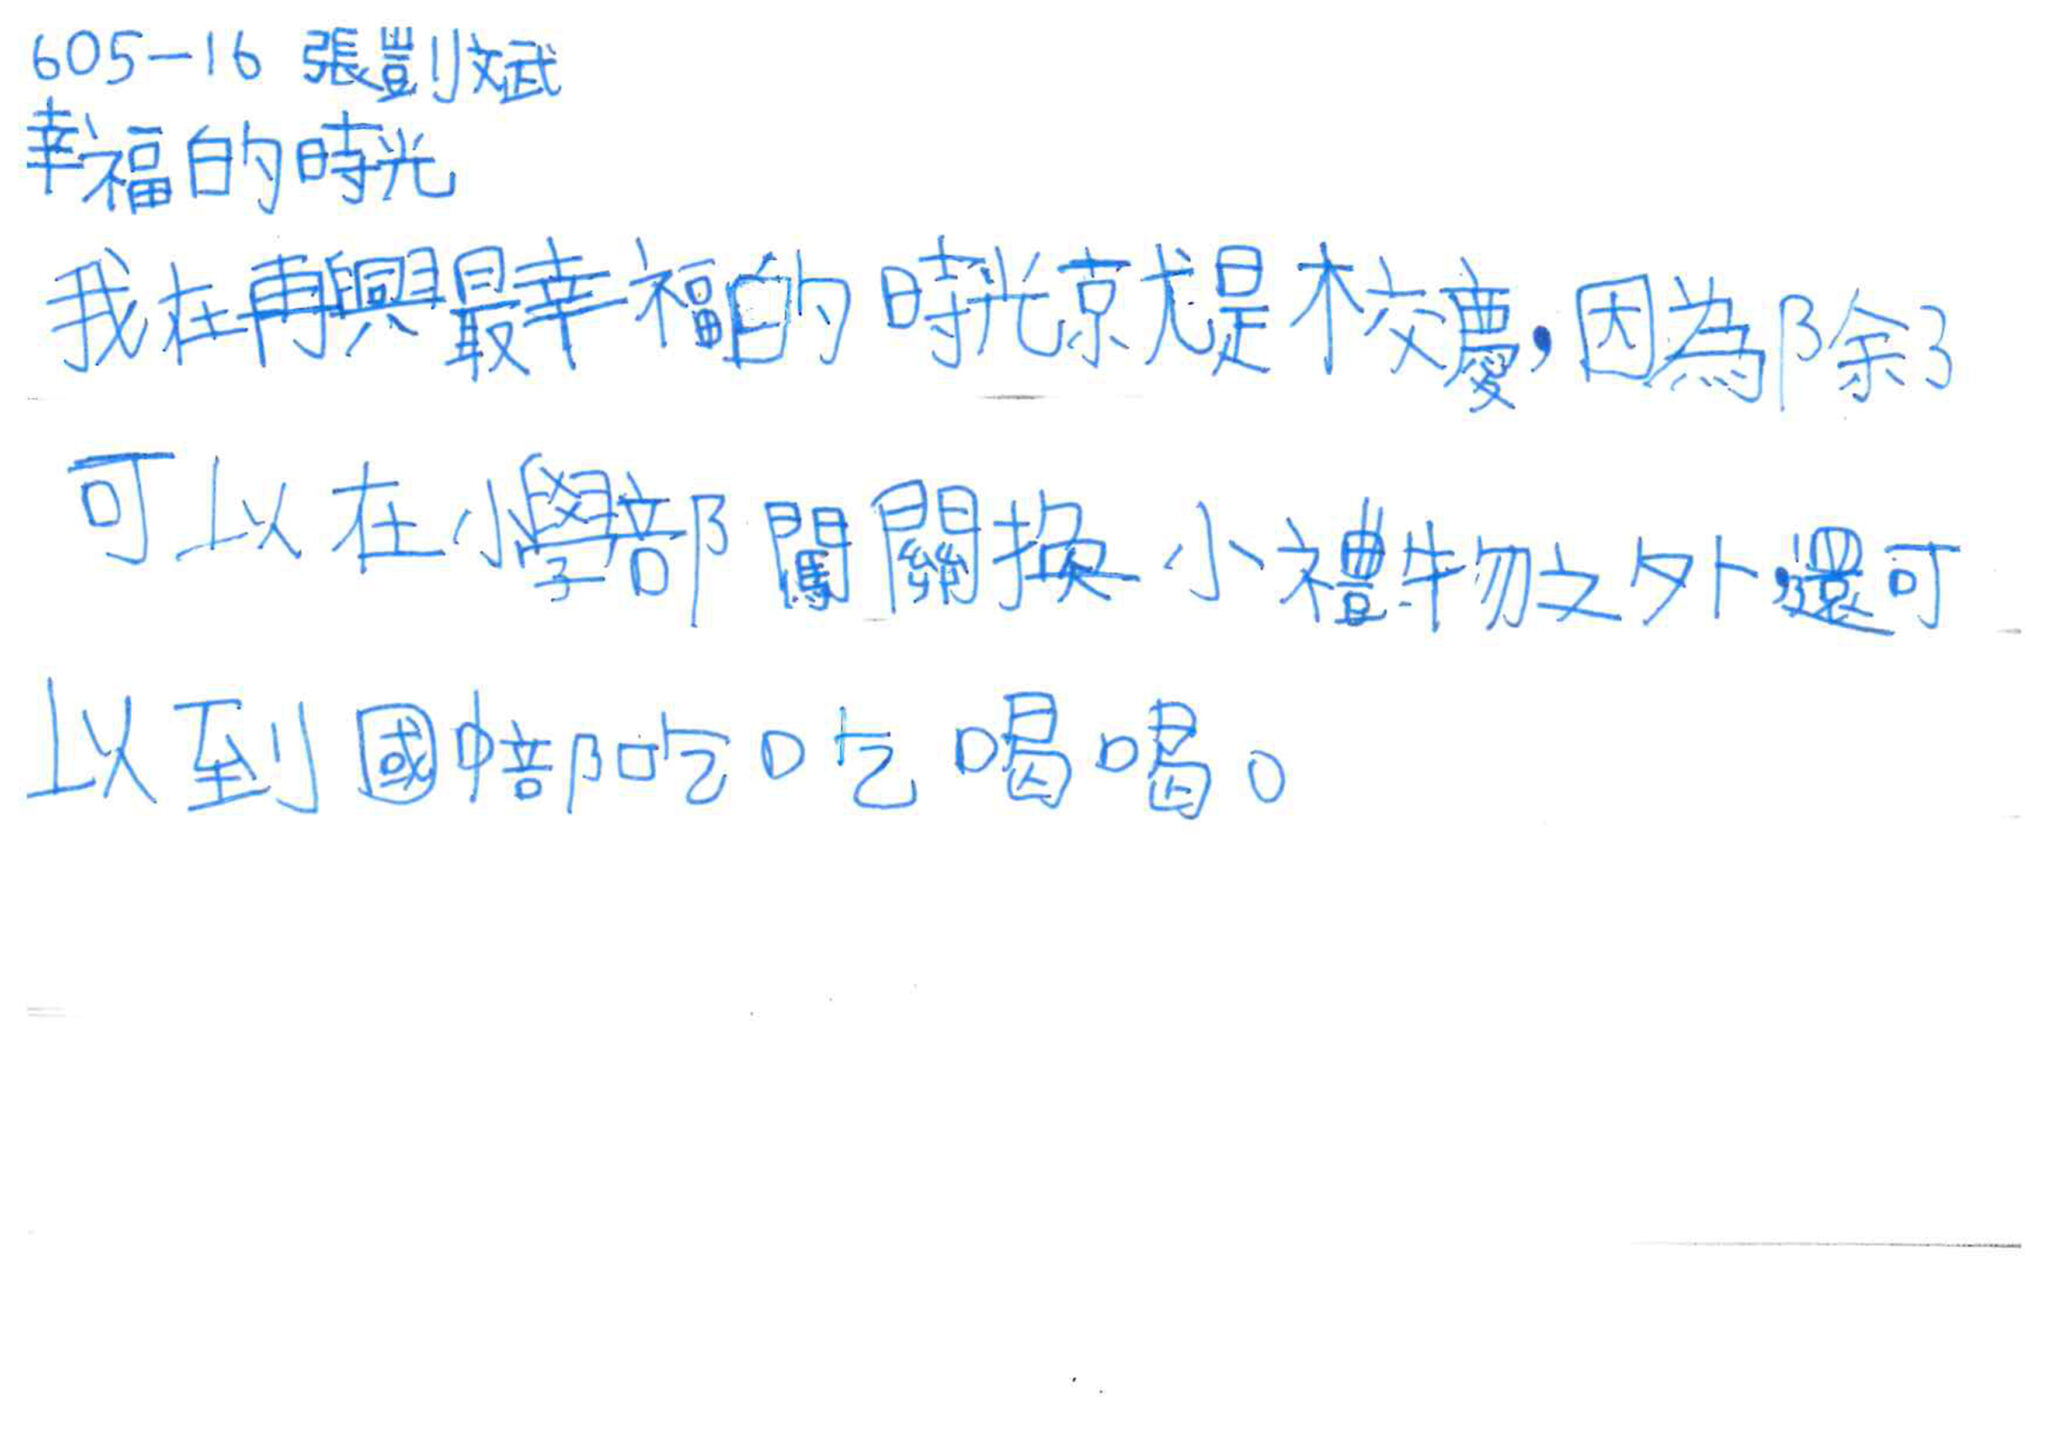 605-16 張剴斌
幸福的時光
我在再興最幸福的時光就是校慶,因為除了
可以在小學部闖關換小禮物之外,還可
以到國中部吃吃喝喝。